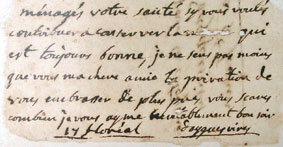 ménagés votre santé sy vous voulés
contribuer a conserver la qui
est toujours bonne je ne sens pas moins
que vous ma chere amie la privation de
vous embrasser de plus pres, vous scaves
combien je vous ayme bon soir
17 floréal